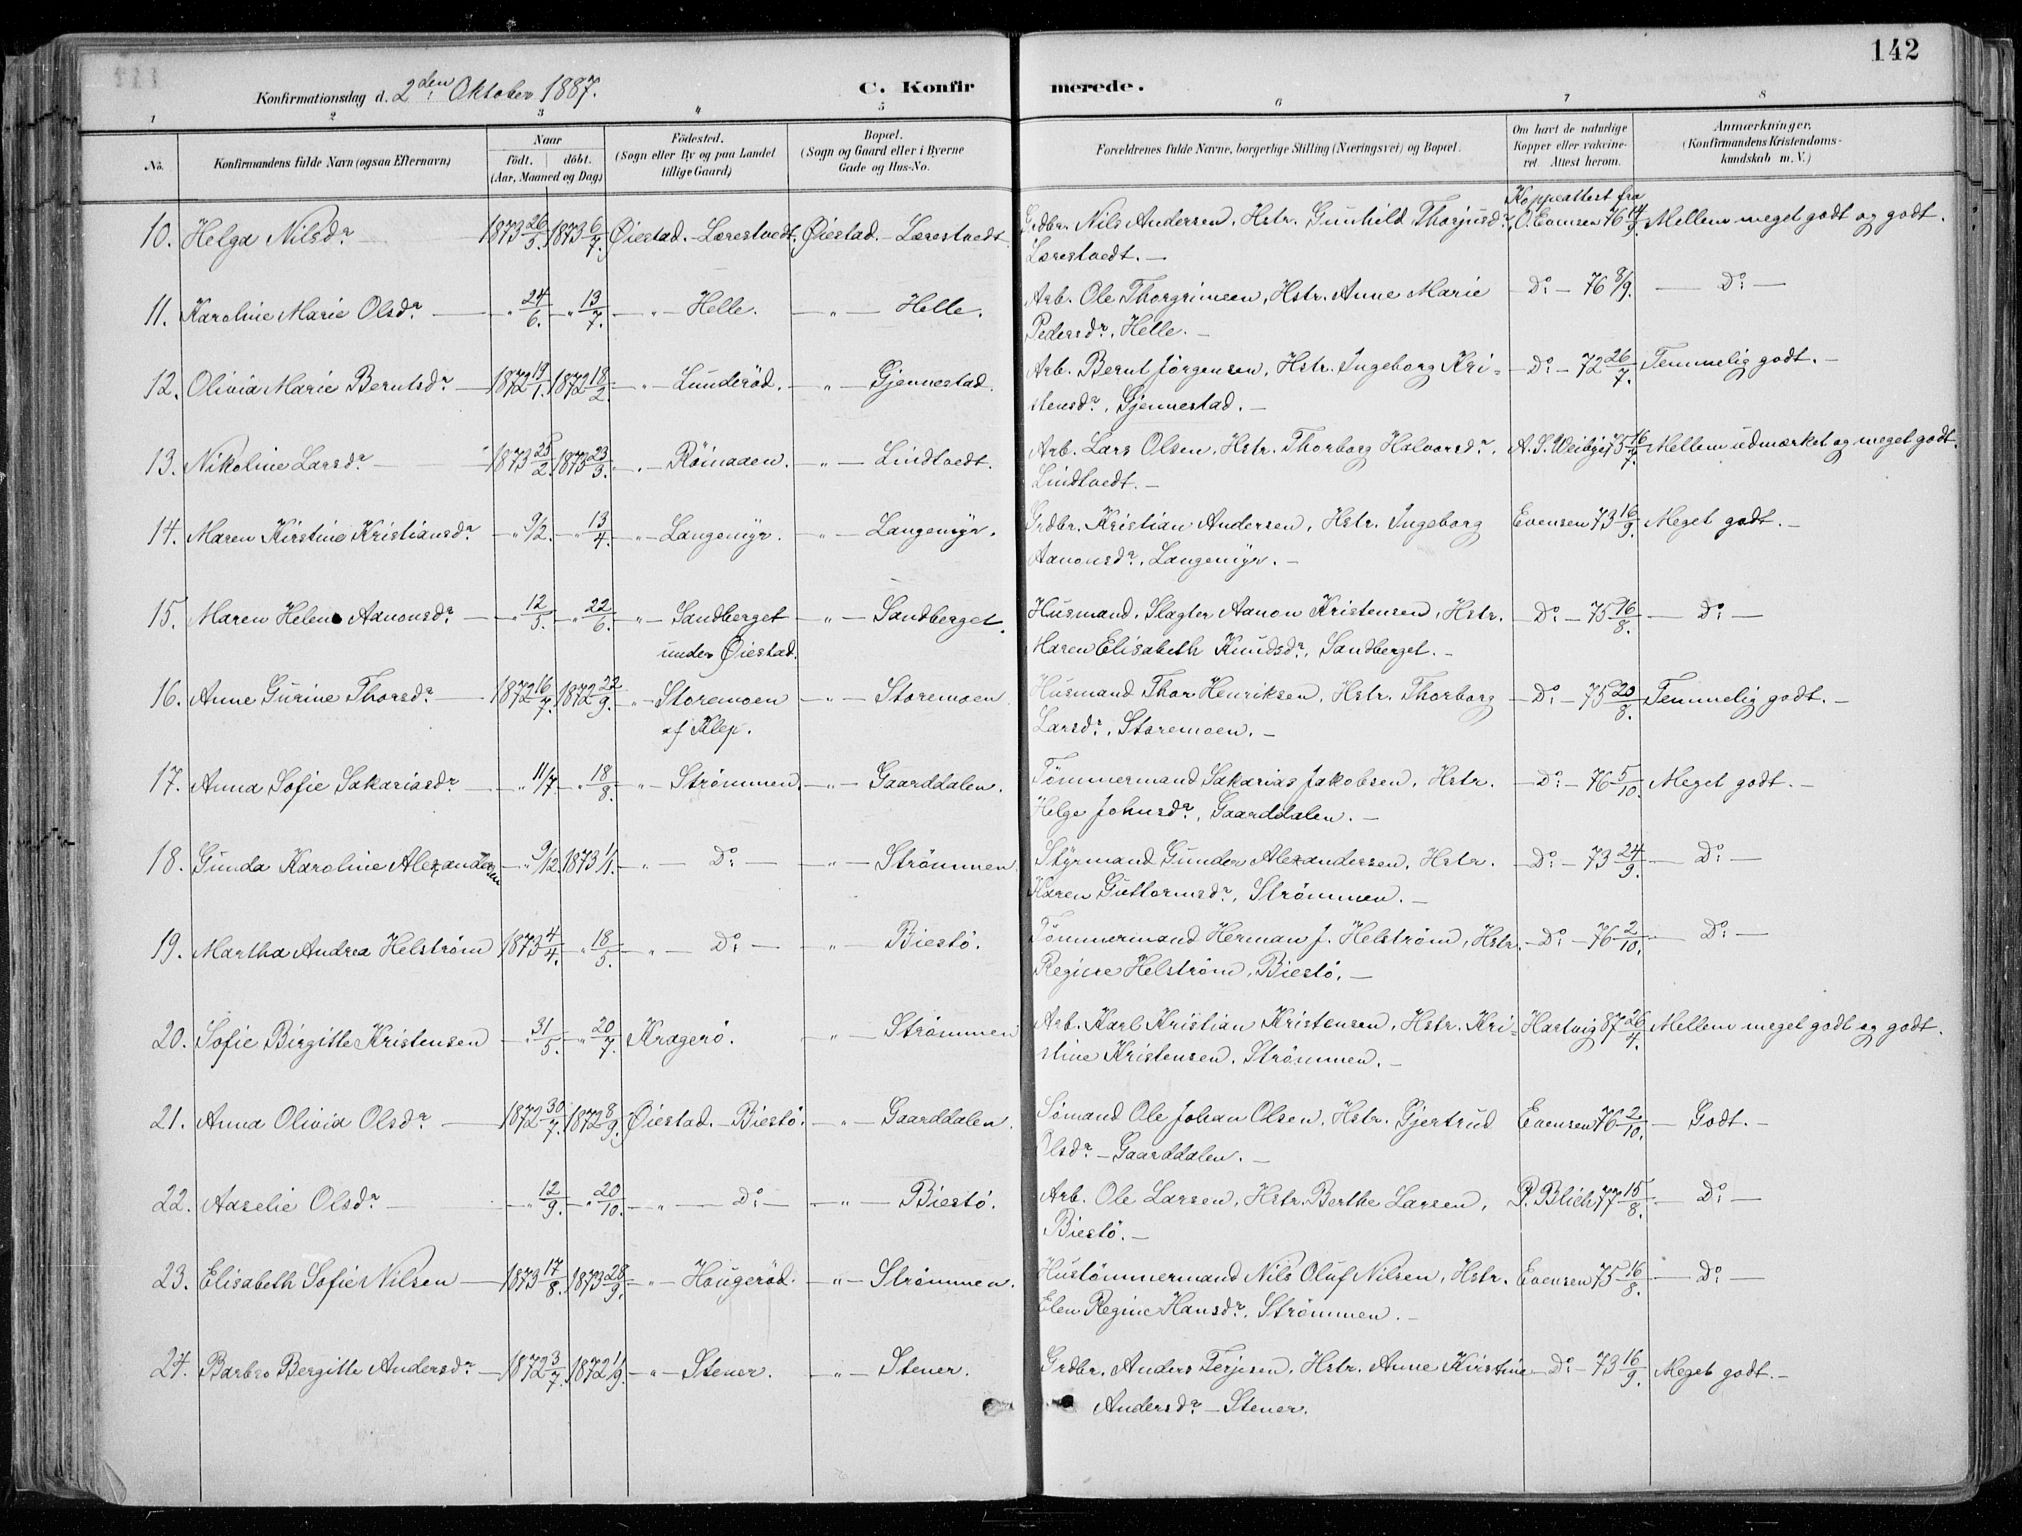 142
Konfirmationsdag d. 2den Oktober 1887.
C. Konfirmerede.
1 2 3 4 5 6 7 8
No. Konfirmandens fulde Navn (ogsaa Efternavn) Naar födt. döbt. (Aar, Maaned og Dag) Födested. (Sogn eller By og paa Landet tillige Gaard) Bopæl. (Sogn og Gaard eller i Byerne Gade og Hus-No. Forældrenes fulde Navne, borgerlige Stilling (Næringsvei) og Bopæl. Om havt de naturlige Kopper eller vakcineret. Attest herom. Anmærkninger. (Konfirmandens Kristendomskundskab m. V.)
Koppeattest fra
10. Helga Nilsdr 1873 26/5. 1873 6/7. Øiestad. - Lærestvedt. Øiestad. - Lærestvedt. Grdbr. Nils Andersen, Hstr. Gunhild Thorjusdr, O. Evensen 76 14/9. Mellem meget godt og godt.
Lærestvedt. -
11. Karoline Marie Olsdr - " 24/6. - " 13/7. - " - Helle. - " - Helle. Arb. Ole Thorgrimsen, Hstr. Anne Marie - Do - 76 8/9. - Do -
Pedersdr, Helle. -
12. Olivia Marie Berntsdr - 1872 19/1. 1872 18/2. - " - Lunderöd. - " - Gjennestad. Arb. Bernt Jörgensen, Hstr. Ingeborg Kri- - Do - 72 26/7. Temmelig godt. -
stensdr, Gjennestad. -
13. Nikoline Larsdr - 1873 25/2. 1873 23/3. " - Römaaen. - " - Lindtvedt. Arb. Lars Olsen, Hstr. Thorborg Halvorsdr, A. S. Weibye 75 16/7. Mellem udmærket og meget godt.
Lindtvedt. -
14. Maren Kirstine Kristiansdr - " 9/2. - " 13/4. - " - Langemyr. - " - Langemyr. Grdbr. Kristian Andersen, Hstr. Ingeborg Evensen 73 16/9. Meget godt. -
Aanonsdr, Langemyr. -
15. Maren Helene Aanonsdr - " 12/5. - " 22/6. - " - Sandberget - " - Sandberget. Husmand, Slagter Aanon Kristensen, Hstr. - Do - 75 16/8. - Do -
under Øiestad. Maren Elisabeth Knudsdr, Sandberget. -
16. Anne Gurine Thorsdr - 1872 16/7. 1872 22/9. - " - Storemoen - " - Storemoen. Husmand Thor Henriksen, Hstr. Thorborg - Do - 75 20/8. Temmelig godt. -
af Klep. Larsdr, Storemoen. -
17. Anna Sofie Sakariasdr - " 11/7 - " 18/8. - " - Strömmen. - " - Gaarddalen. Tömmermand Sakarias Jakobsen, Hstr. - Do - 76 5/10. Meget godt. -
Helge Johnsdr, Gaarddalen. -
18. Gunda Karoline Alexandersen - " 9/12. 1873 1/1. - " - Do - - " - Strömmen. Styrmand Gunder Alexandersen, Hstr. - Do - 73 24/9. - Do -
Karen Guttormsdr, Strömmen. -
19. Martha Andrea Helström 1873 4/4. - " 18/5. - " - Do - " Biestö. Tömmermand Herman J. Helström, Hstr. - Do - 76 2/10. - Do -
Regine Helström, Biestö. -
20. Sofie Birgitte Kristensen - " 31/5. - " 20/7. Kragerö. - " - Strömmen Arb. Karl Kristian Kristensen, Hstr. Kri- Hartvig 87 26/4. Mellem meget godt og godt.
stine Kristensen, Strömmen. -
21. Anna Olivia Olsdr - 1872 30/7. 1872 8/9. Øiestad. - Biestö. - " - Gaarddalen. Sömand Ole Johan Olsen, Hstr. Gjertrud Evensen 76 2/10. - Godt. -
Olsdr - Gaarddalen. -
22. Aaselie Olsdr - " 12/9. - " 20/10. - " - Do - - " - Biestö. Arb. Ole Larsen, Hstr. Berthe Larsen, P. Blich 77 15/8. - Do -
Biestö. -
23. Elisabeth Sofie Nilsen - 1873 17/8. 1873 28/9. - " - Hougeröd. - " - Strömmen. Hustömmermand Nils Oluf Nilsen, Hstr. Evensen 75 16/8. - Do -
Elen Regine Hansdr, Strömmen. -
24. Barbro Bergitte Andersdr - 1872 3/7. 1872 1/9. - " - Stener. - " - Stener. Grdbr. Anders Terjesen, Hstr. Anne Kirstine - Do - 73 16/9. Meget godt. -
Andersdr - Stener.